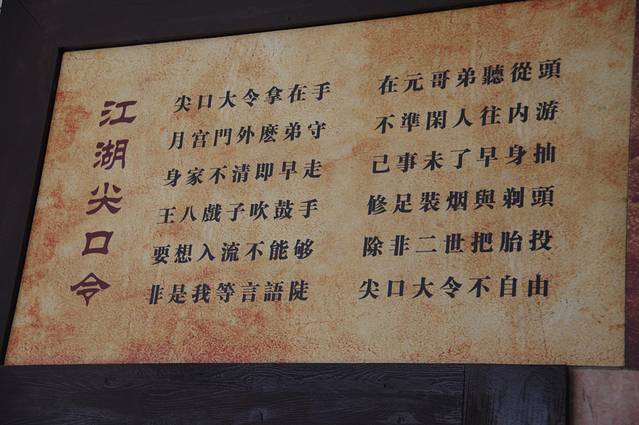 江湖尖口令
尖口大令拿在手
月宫門外麽弟守
身家不清即早走
王八戲子吹鼓手
要想入流不能够
非是我等言語陡
在元哥弟聽從頭
不準閑人往内游
己事未了早身抽
修足裝烟與剃頭
除非二世把胎投
尖口大令不自由